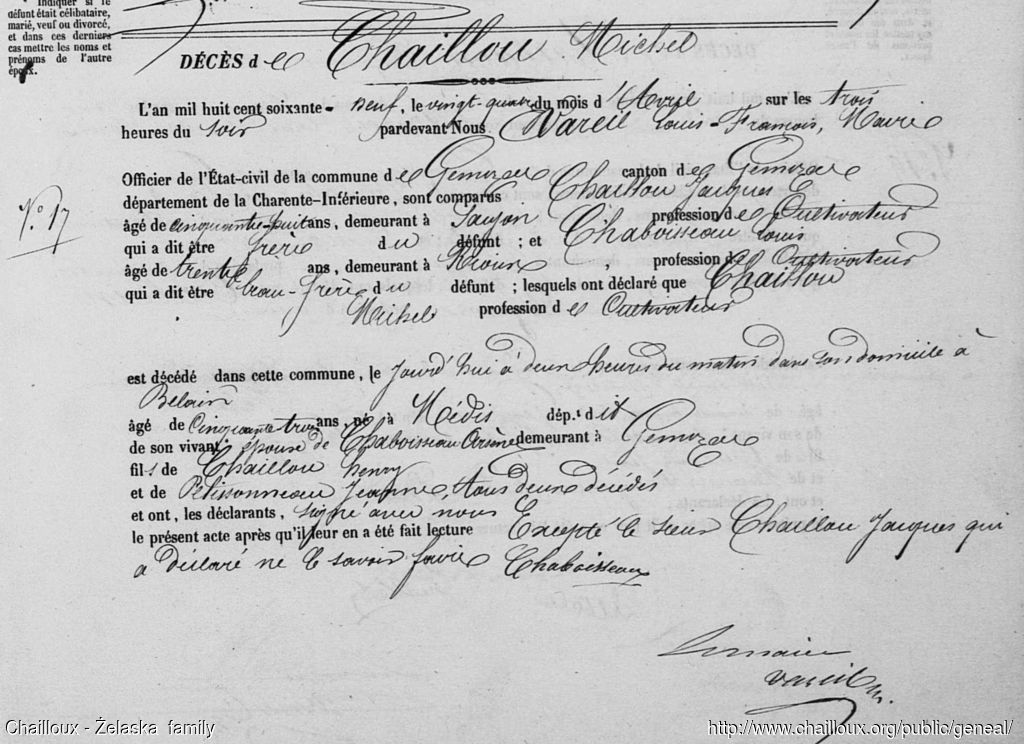 Indiquer si le
défunt était célibataire,
marié, veuf ou divorcé,
et dans ces derniers
cas mettre les noms et
prénoms de l'autre
époux.
DÉCÈS de Chaillou Michel
L'an mil huit cent soixante-neuf, le vingt-quatre du mois d'Avril sur les trois
heures du Soir pardevant Nous Vareil Louis-François, Maire
Officier de l'État-civil de la commune de Gemozac canton de Gemozac
département de la Charente-Inférieure, sont comparus Chaillou Jacques
N.o 17
âgé de cinquante-huit ans, demeurant à Saujon profession de Cultivateur
qui a dit être frère du défunt ; et Chaboisseau Louis
âgé de trente ans, demeurant à , profession de Cultivateur
qui a dit être beau-frère du défunt ; lesquels ont déclaré que Chaillou
Michel profession de Cultivateur
est décédé dans cette commune, le jourd'hui à deux heures du matin dans son domicile à
Belair
âgé de Cinquante trois ans, né à Médis dép.t dit
de son vivant époux de Chaboisseau Arsène demeurant à Gemozac
fils de Chaillou henry
et de Pelissonneau Jeanne, tous deux décédés
et ont, les déclarants, signé avec nous
le présent acte après qu'il leur en a été fait lecture Excepté le sieur Chaillou Jacques qui
a déclaré ne le savoir faire Chaboisseau
Le maire
Vareil
Chailloux - Żelaska family
http://www.chailloux.org/public/geneal/